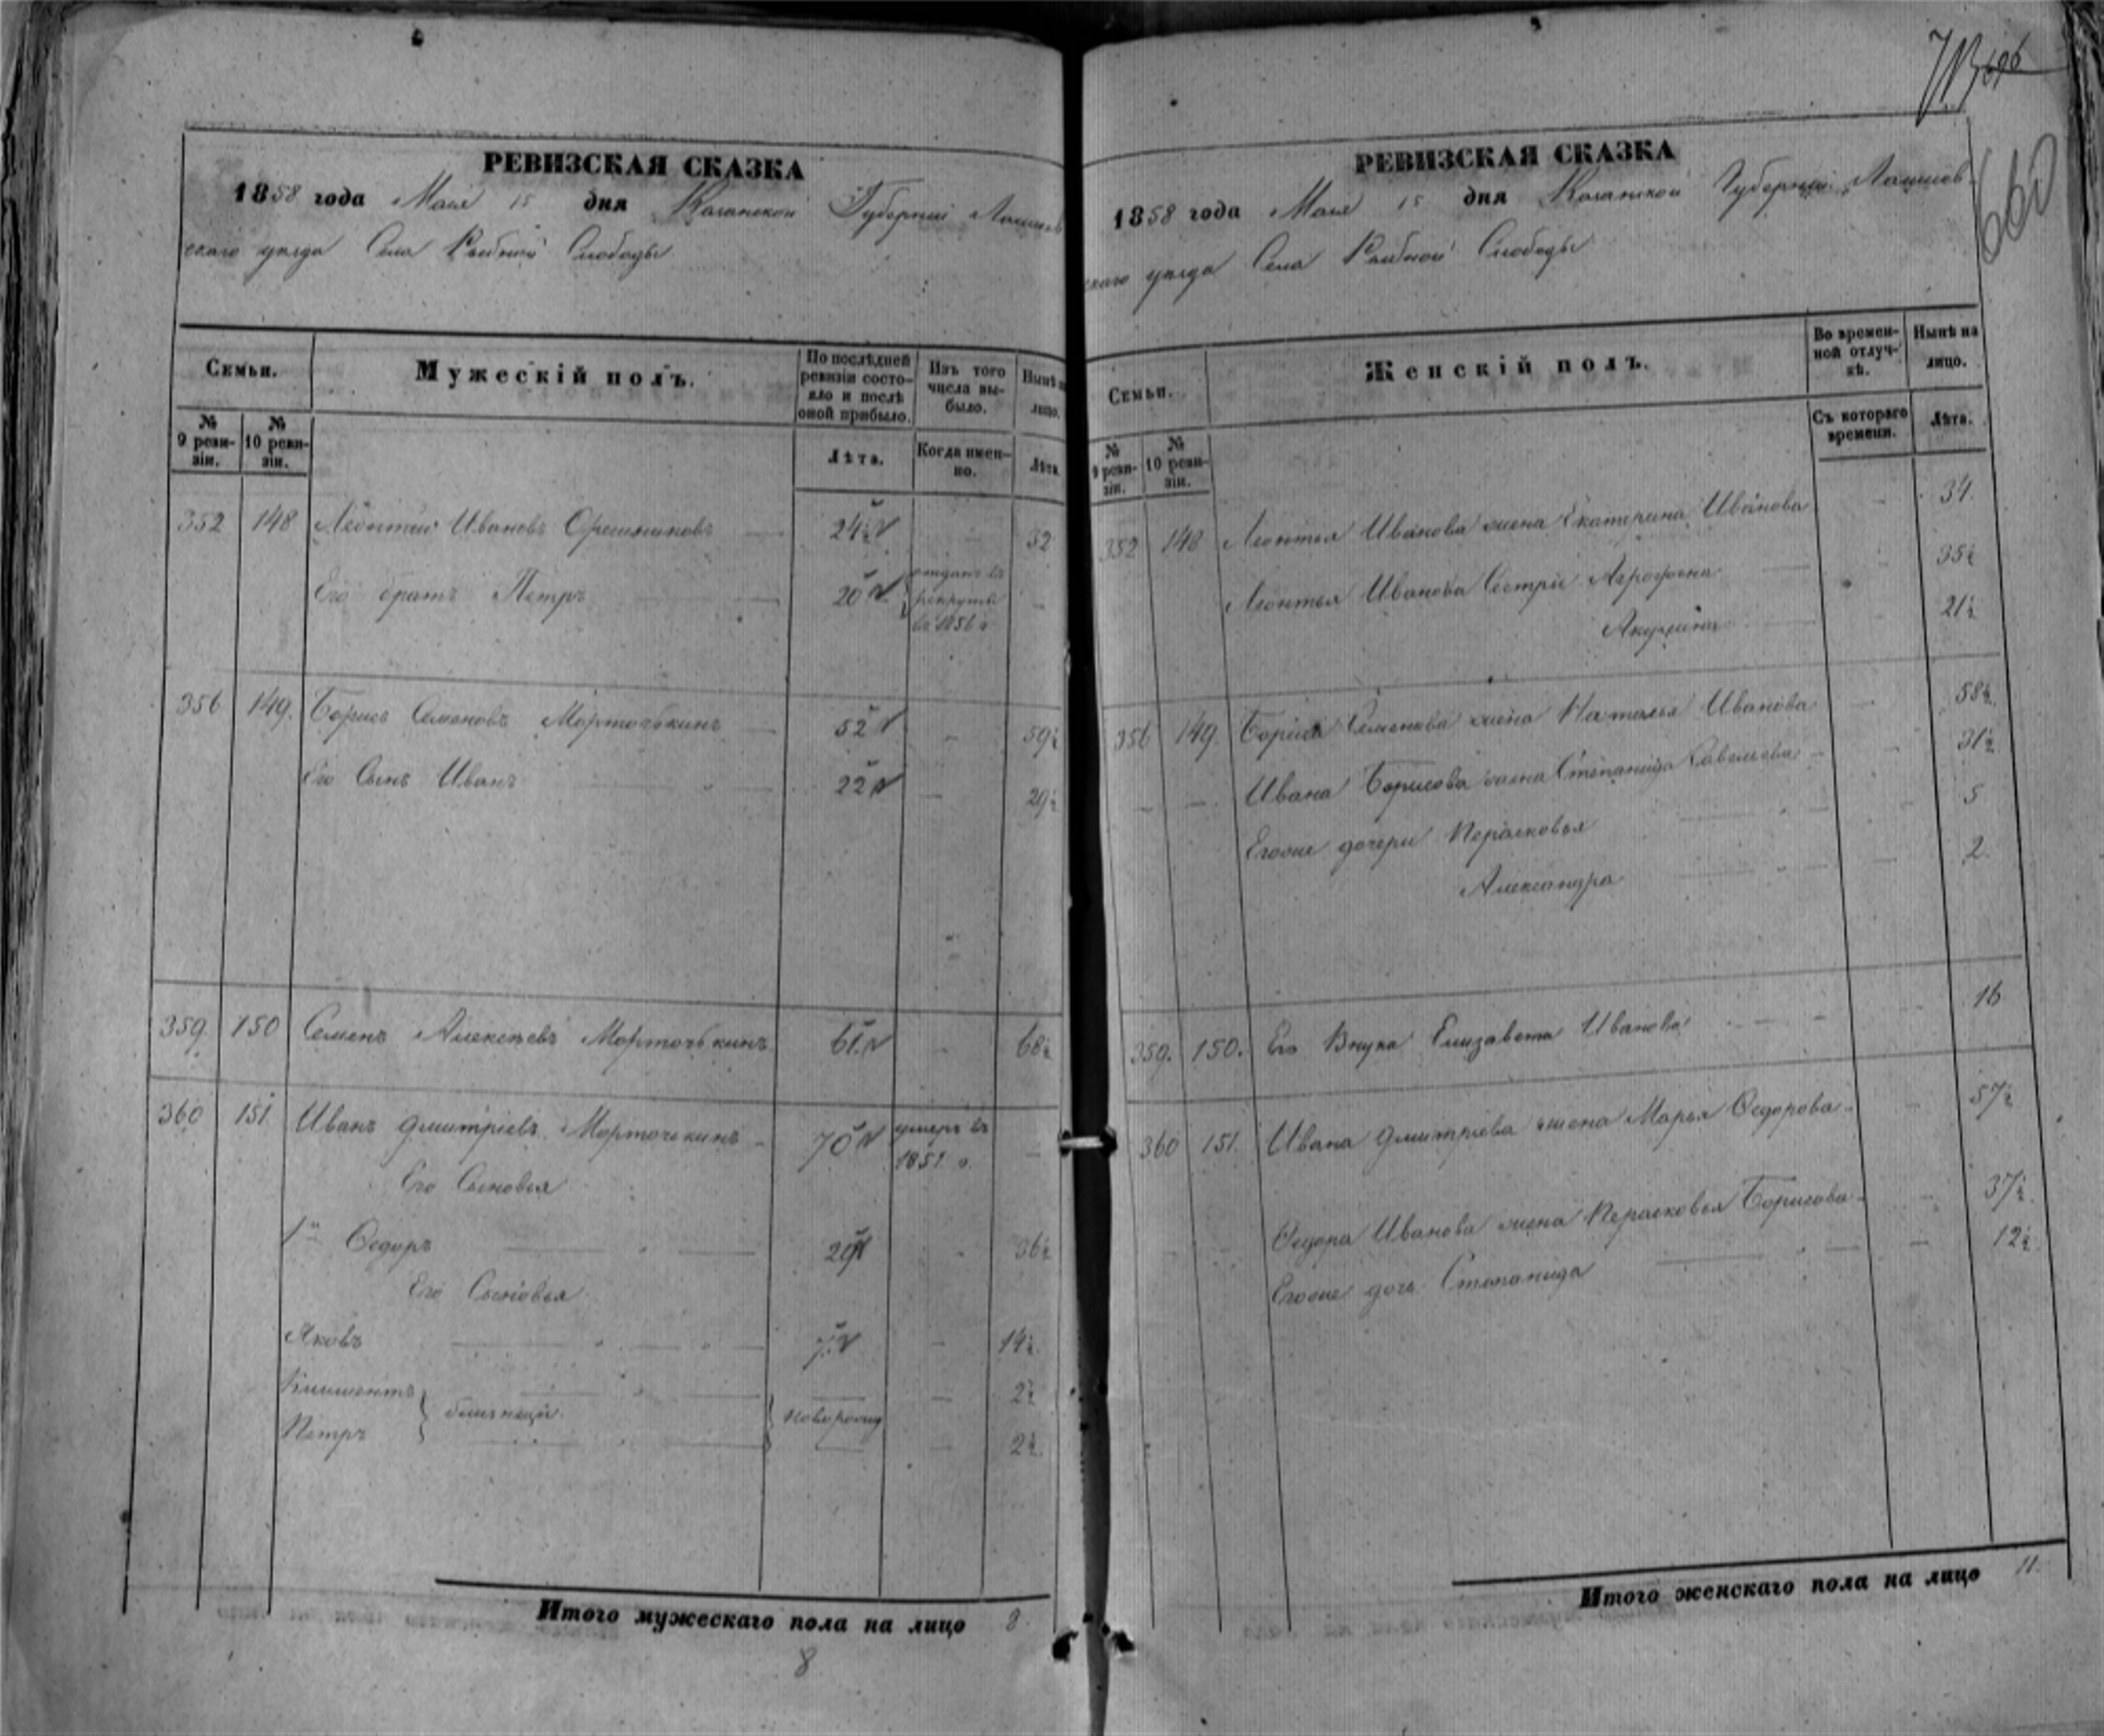 696
660
РЕВИЗСКАЯ СКАЗКА
1858 года Мая 15 дня Казанской Губерніи Лаишев
скаго уезда Села Рыбной Слободы
Семьи.
Мужескій полъ.
По послѣдней ревизіи состояло и послѣ оной прибыло.
Изъ того числа выбыло.
Нынѣ на лицо.
№ 9 ревизіи.
№ 10 ревизіи.
Лѣта.
Когда именно.
Лѣта
352 148 Леонтий Ивановъ 24½ 32
Его братъ Петръ 20 отданъ въ рекруты въ 1856 г
356 149. Борисъ Семеновъ Морточькинъ 52 59½
Его Сынъ Иванъ 22 29½
359. 150 Семенъ Алексеевъ Морточькинъ 61. 68½
360 151. Иванъ Дмитріевъ Морточькинъ 70 умеръ въ 1851 г.
Его Сыновья
1й Федоръ 29 36½
Его Сыновья
Яковъ 7. 14½
Климентъ } близнецы } новорожд 2½
Петръ 2½
Итого мужескаго пола на лицо 8.
8
РЕВИЗСКАЯ СКАЗКА
1858 года Мая 15 дня Казанской Губерніи Лаишев
скаго уезда Села Рыбной Слободы
Семьи.
Женскій полъ.
Во временной отлучкѣ.
Нынѣ на лицо.
№ 9 ревизіи.
№ 10 ревизіи.
Съ котораго времени.
Лѣта.
352 148 Леонтья Иванова жена Екатерина Иванова 34.
Леонтья Иванова Сестры 35½
Акулина 21½
356 149. Бориса Семенова жена Наталья Иванова 58½
Ивана Борисова жена Степанида Савельева 31½
Егоже дочери Перасковья 5
Александра 2.
359. 150. Его Внука Елизавета Иванова 16
360 151. Ивана Дмитріева жена Марья Федорова 57½
Федора Иванова жена Перасковья Борисова 37½
Егоже дочь Степанида 12½
Итого женскаго пола на лицо 11.